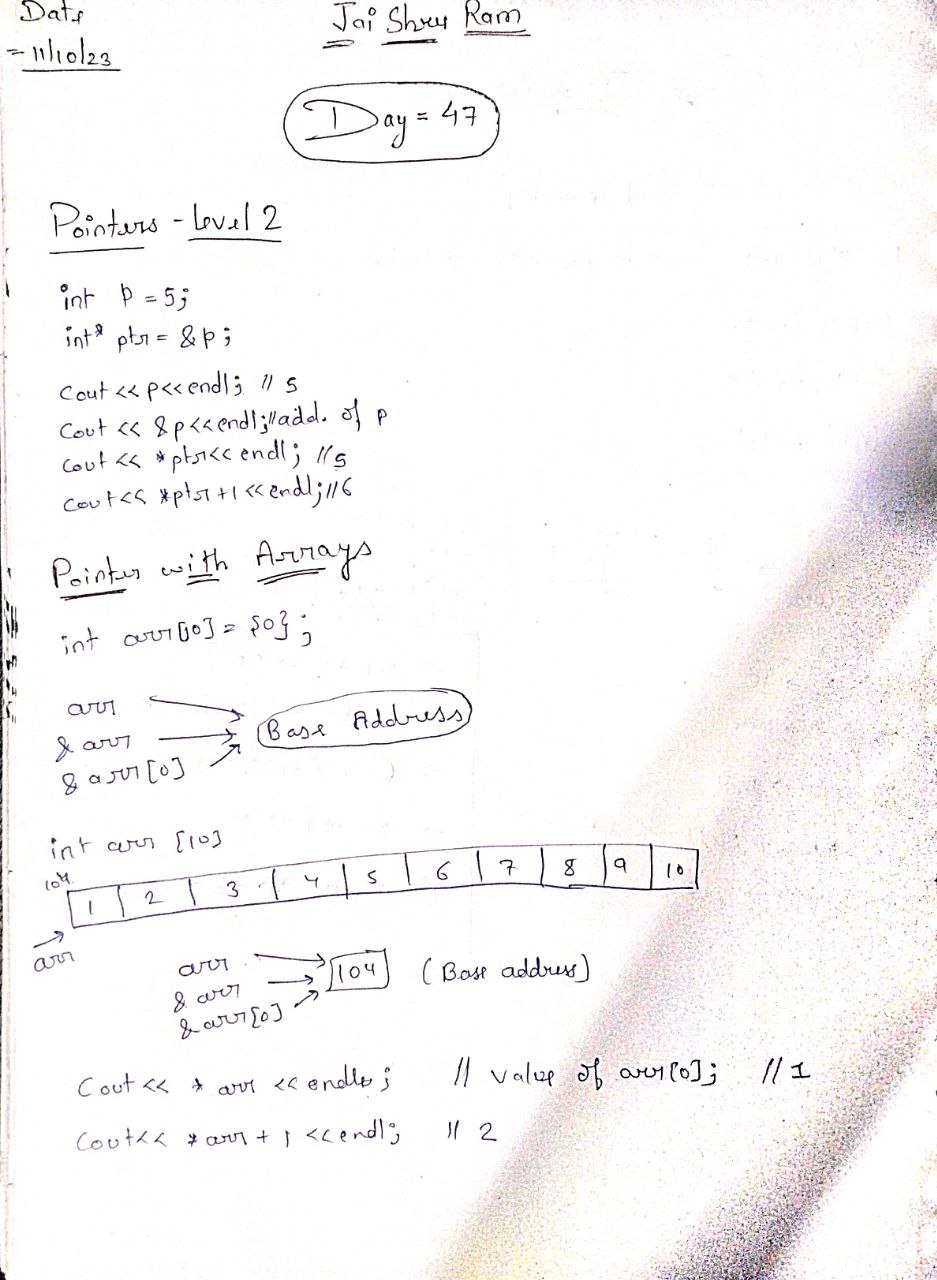 Date
= 11/10/23
Jai Shree Ram
Day = 47
Pointers - Level 2
int p = 5;
int* ptr = &p;
Cout << p << endl; // 5
Cout << &p << endl; // add. of p
Cout << *ptr << endl; // 5
Cout << *ptr + 1 << endl; // 6
Pointer with Arrays
int arr[10] = {0};
arr
& arr
& arr[0]
Base Address
int arr [10]
104
1 2 3 4 5 6 7 8 9 10
arr
arr
& arr
& arr[0]
104 (Base address)
Cout << * arr << endl; // value of arr[0]; // 1
Cout << * arr + 1 << endl; // 2